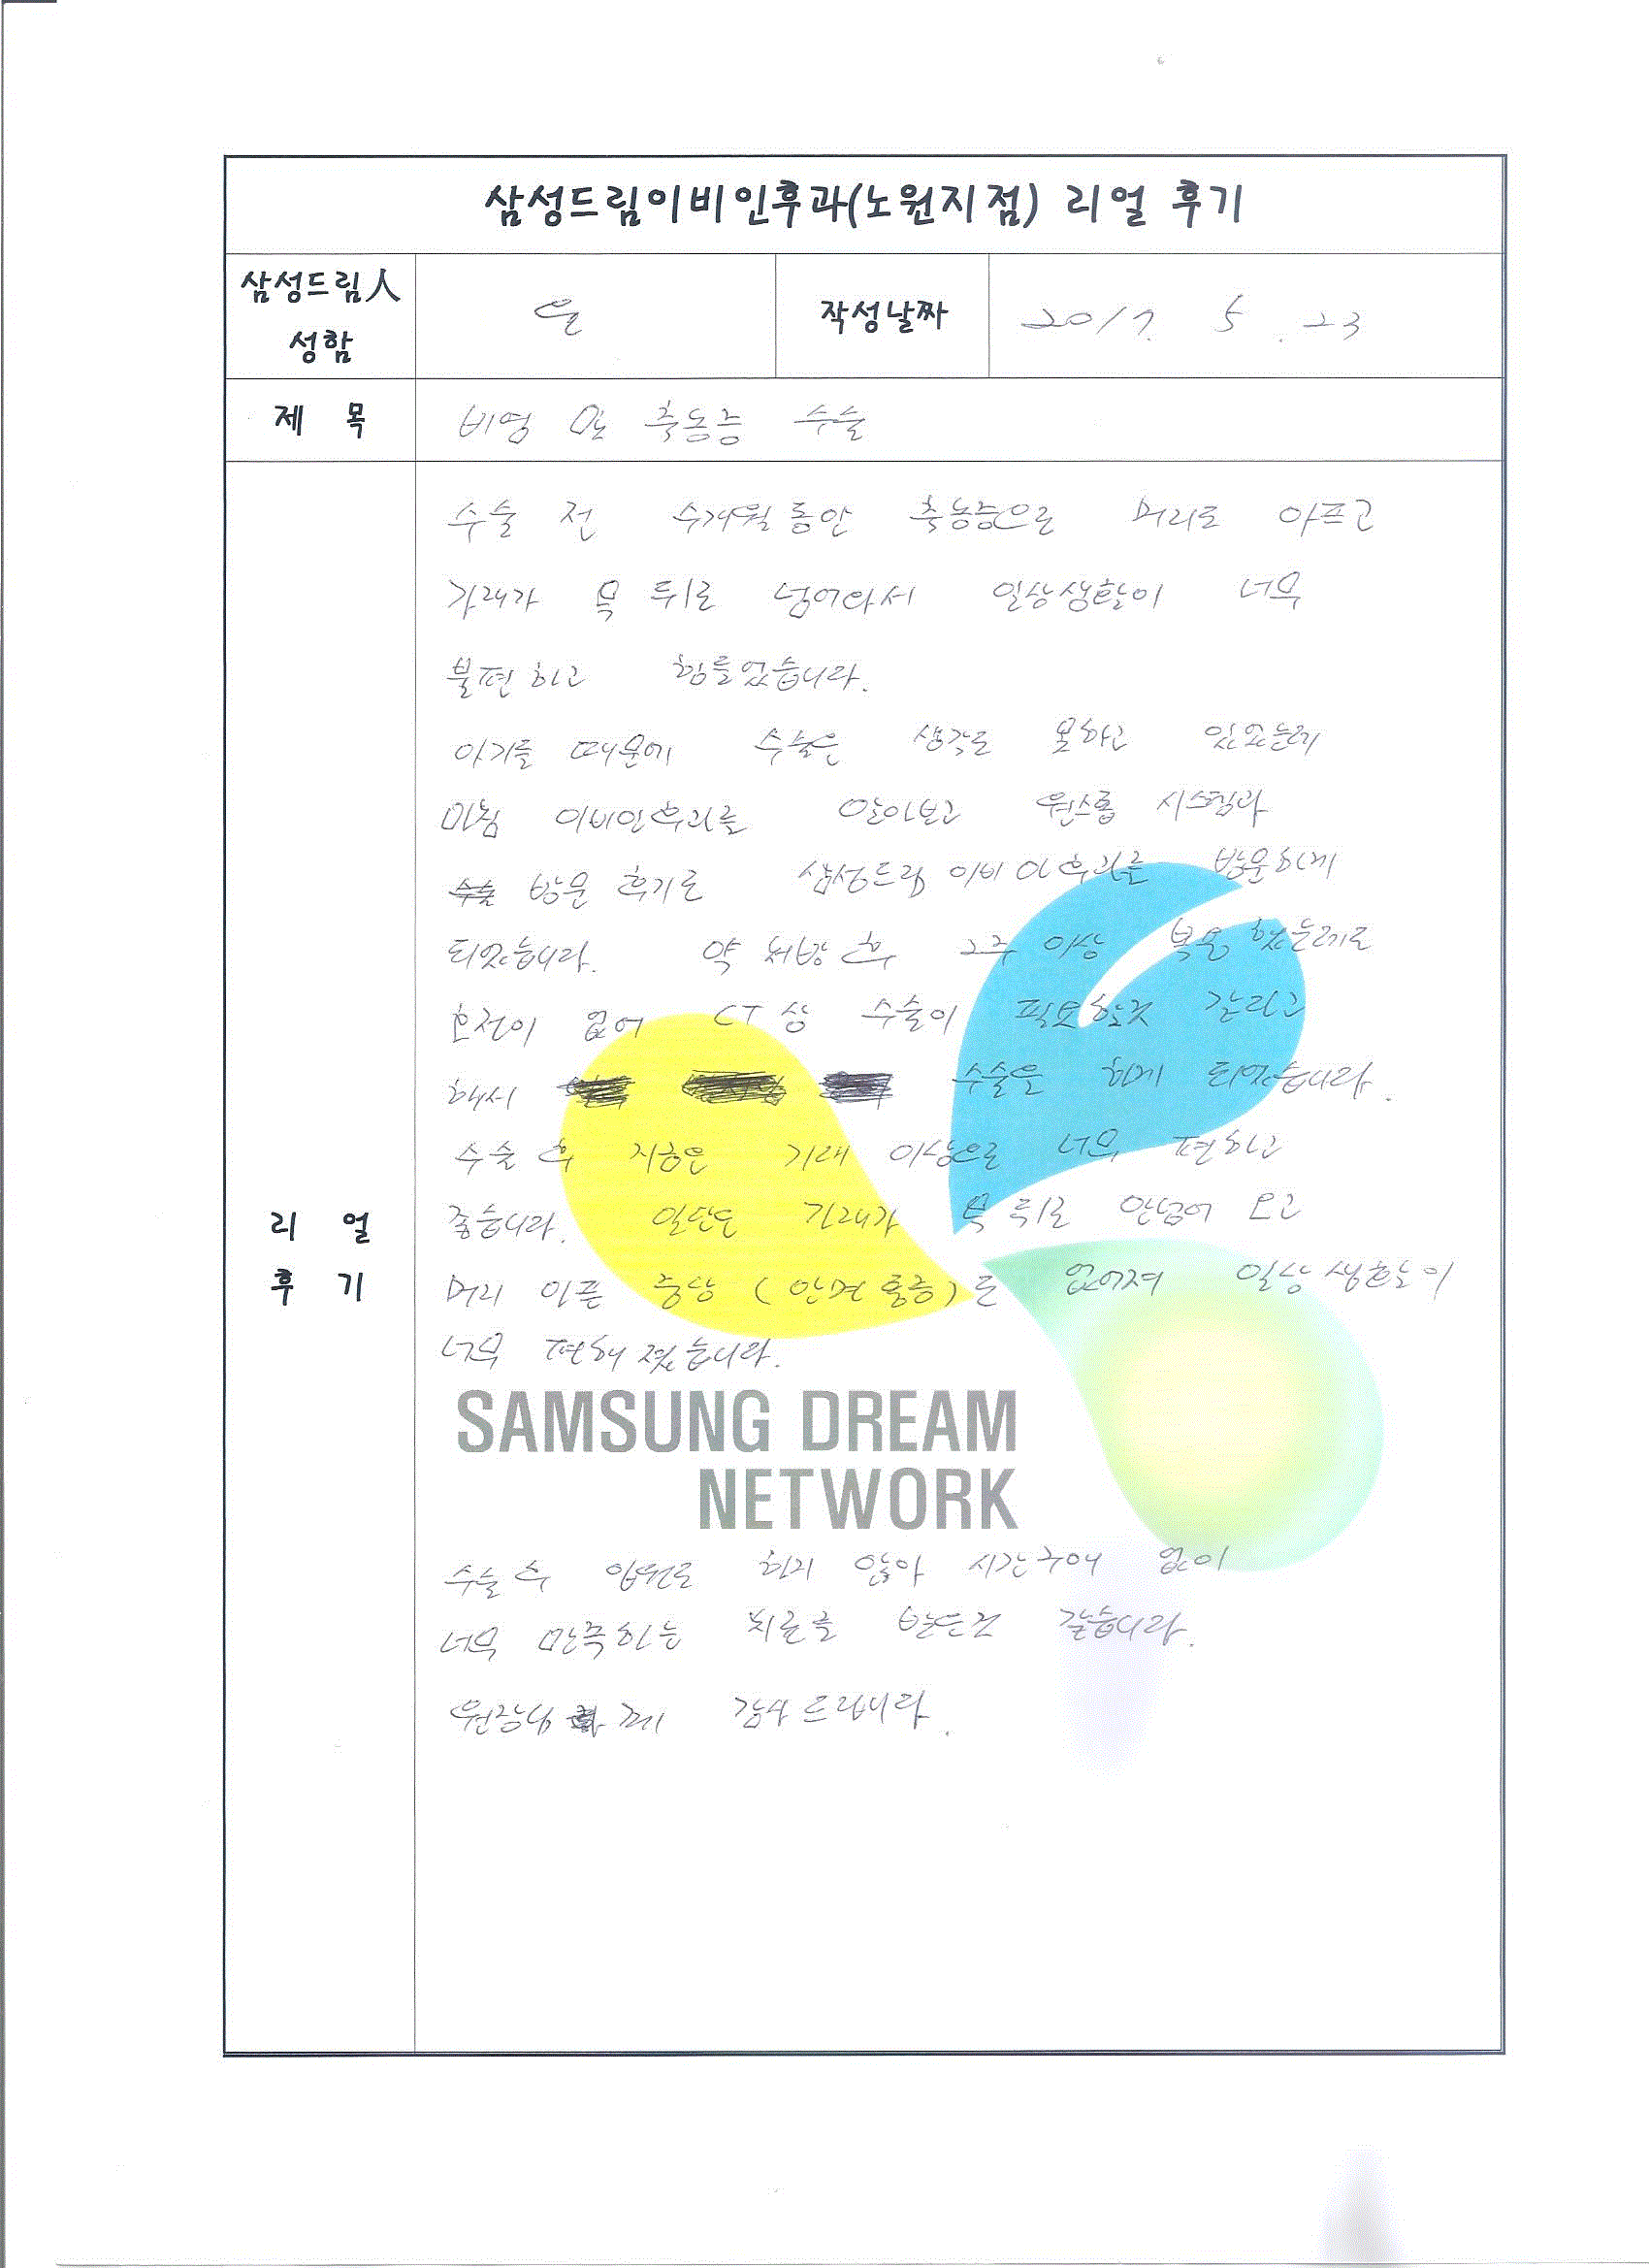 삼성드림이비인후과(노원지점) 리얼 후기
삼성드림人
성함
작성날짜
2017. 5. 23
제 목
비염 및 축농증 수술
수술 전 수개월 동안 축농증으로 머리도 아프고
가래가 목 뒤로 넘어와서 일상생활이 너무
불편하고 힘들었습니다.
아기들 때문에 수술은 생각도 못하고 있었는데
마침 이비인후과를 알아보고 원스톱 시스템과
방문 후기로 삼성드림 이비인후과를 방문하게
되었습니다. 약 처방 후 2주 이상 복용 했는데도
호전이 없어 CT상 수술이 필요할것 같다고
해서 수술을 하게 되었습니다.
수술 후 지금은 기대 이상으로 너무 편하고
좋습니다. 일단은 가래가 목 뒤로 안넘어 오고
머리 아픈 증상 (안면 통증)도 없어져 일상생활이
너무 편해 졌습니다.
SAMSUNG DREAM
NETWORK
리 얼
후 기
수술 후 입원도 하지 않아 시간구애 없이
너무 만족하는 치료를 받은것 같습니다.
원장님께 감사드립니다.